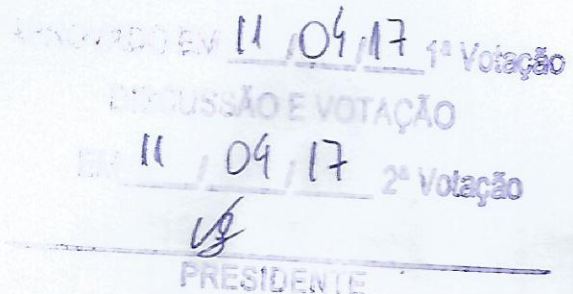 APROVADO EM 11 / 04 / 17 1ª Votação
DISCUSSÃO E VOTAÇÃO
EM 11 / 04 / 17 2ª Votação
PRESIDENTE